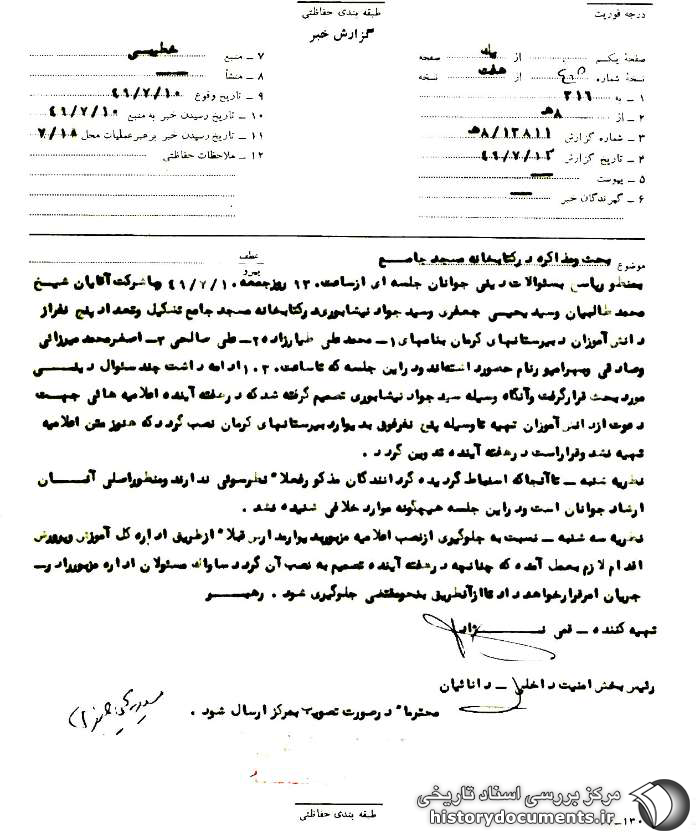 درجه فوریت
طبقه بندی حفاظتی
گزارش خبر
صفحهٔ یکم از یک صفحه
نسخهٔ شماره از هفت نسخه
۱ – به ۳۱۶
۲ – از ۸ﻫ
۳ – شماره گزارش ۸/۱۳۸۱۱ﻫ
۴ – تاریخ گزارش ۴۶/۷/۱۳
۵ – پیوست —
۶ – گیرندگان خبر —
۷ – منبع عطیسی
۸ – منشأ —
۹ – تاریخ وقوع ۴۶/۷/۱۰
۱۰ – تاریخ رسیدن خبر به منبع ۴۶/۷/۱۰
۱۱ – تاریخ رسیدن خبر برهبر عملیات محل ۷/۱۸
۱۲ – ملاحظات حفاظتی
موضوع بحث ومذاکره درکتابخانه مسجد جامع
عطف
پیرو
بمنظور پاسخ بسئوالات دینی جوانان جلسه ای ازساعت ۱۳۰۰ روزجمعه ۴۶/۷/۱۰ باشرکت آقایان شیخ
محمد طالبیان وسید یحیی جعفری وسید جواد نیشابوری درکتابخانه مسجد جامع تشکیل وتعداد پنج نفراز
دانش آموزان دبیرستانهای کرمان بنامهای ۱– محمد علی طیارزاده ۲– علی صالحی ۳– اصغرمحمد میرزائی
وصادقی وبهرامپورنام حضورداشتند ودراین جلسه که تاساعت ادامه داشت چند سئوال دینی
مورد بحث قرارگرفت وآنگاه وسیله سید جواد نیشابوری تصمیم گرفته شد که درهفته آینده اعلامیه هائی جهت
دعوت ازدانش آموزان تهیه تاوسیله پنج نفرفوق بدیوارد بیرستانهای کرمان نصب گردد که هنوز متن اعلامیه
تهیه نشد وقراراست درهفته آینده تدوین گردد .
نظریه شنبه – تاآنجاکه استنباط گردیده گردانندگان مذکورفعلا" نظرسوئی ندارند ومنظوراصلی آنان
ارشاد جوانان است ودراین جلسه هیچگونه موارد خلافی شنیده نشد .
نظریه سه شنبه – نسبت به جلوگیری ازنصب اعلامیه مزبورد یوارمدارس قبلا" ازطریق اداره کل آموزش وپرورش
اقدام لازم بعمل آمده که چنانچه درهفته آینده تصمیم به نصب آن گردد ساواک مسئولان اداره مزبوررادر
جریان امرقرارخواهد داد تاازآنطریق بنحومقتضی جلوگیری شود . رهبر
تهیه کننده – قمی نژاد
رئیس بخش امنیت داخلی – دانائیان
محترما" درصورت تصویب بمرکز ارسال شود .
طبقه بندی حفاظتی
مرکز بررسی اسناد تاریخی
historydocuments.ir